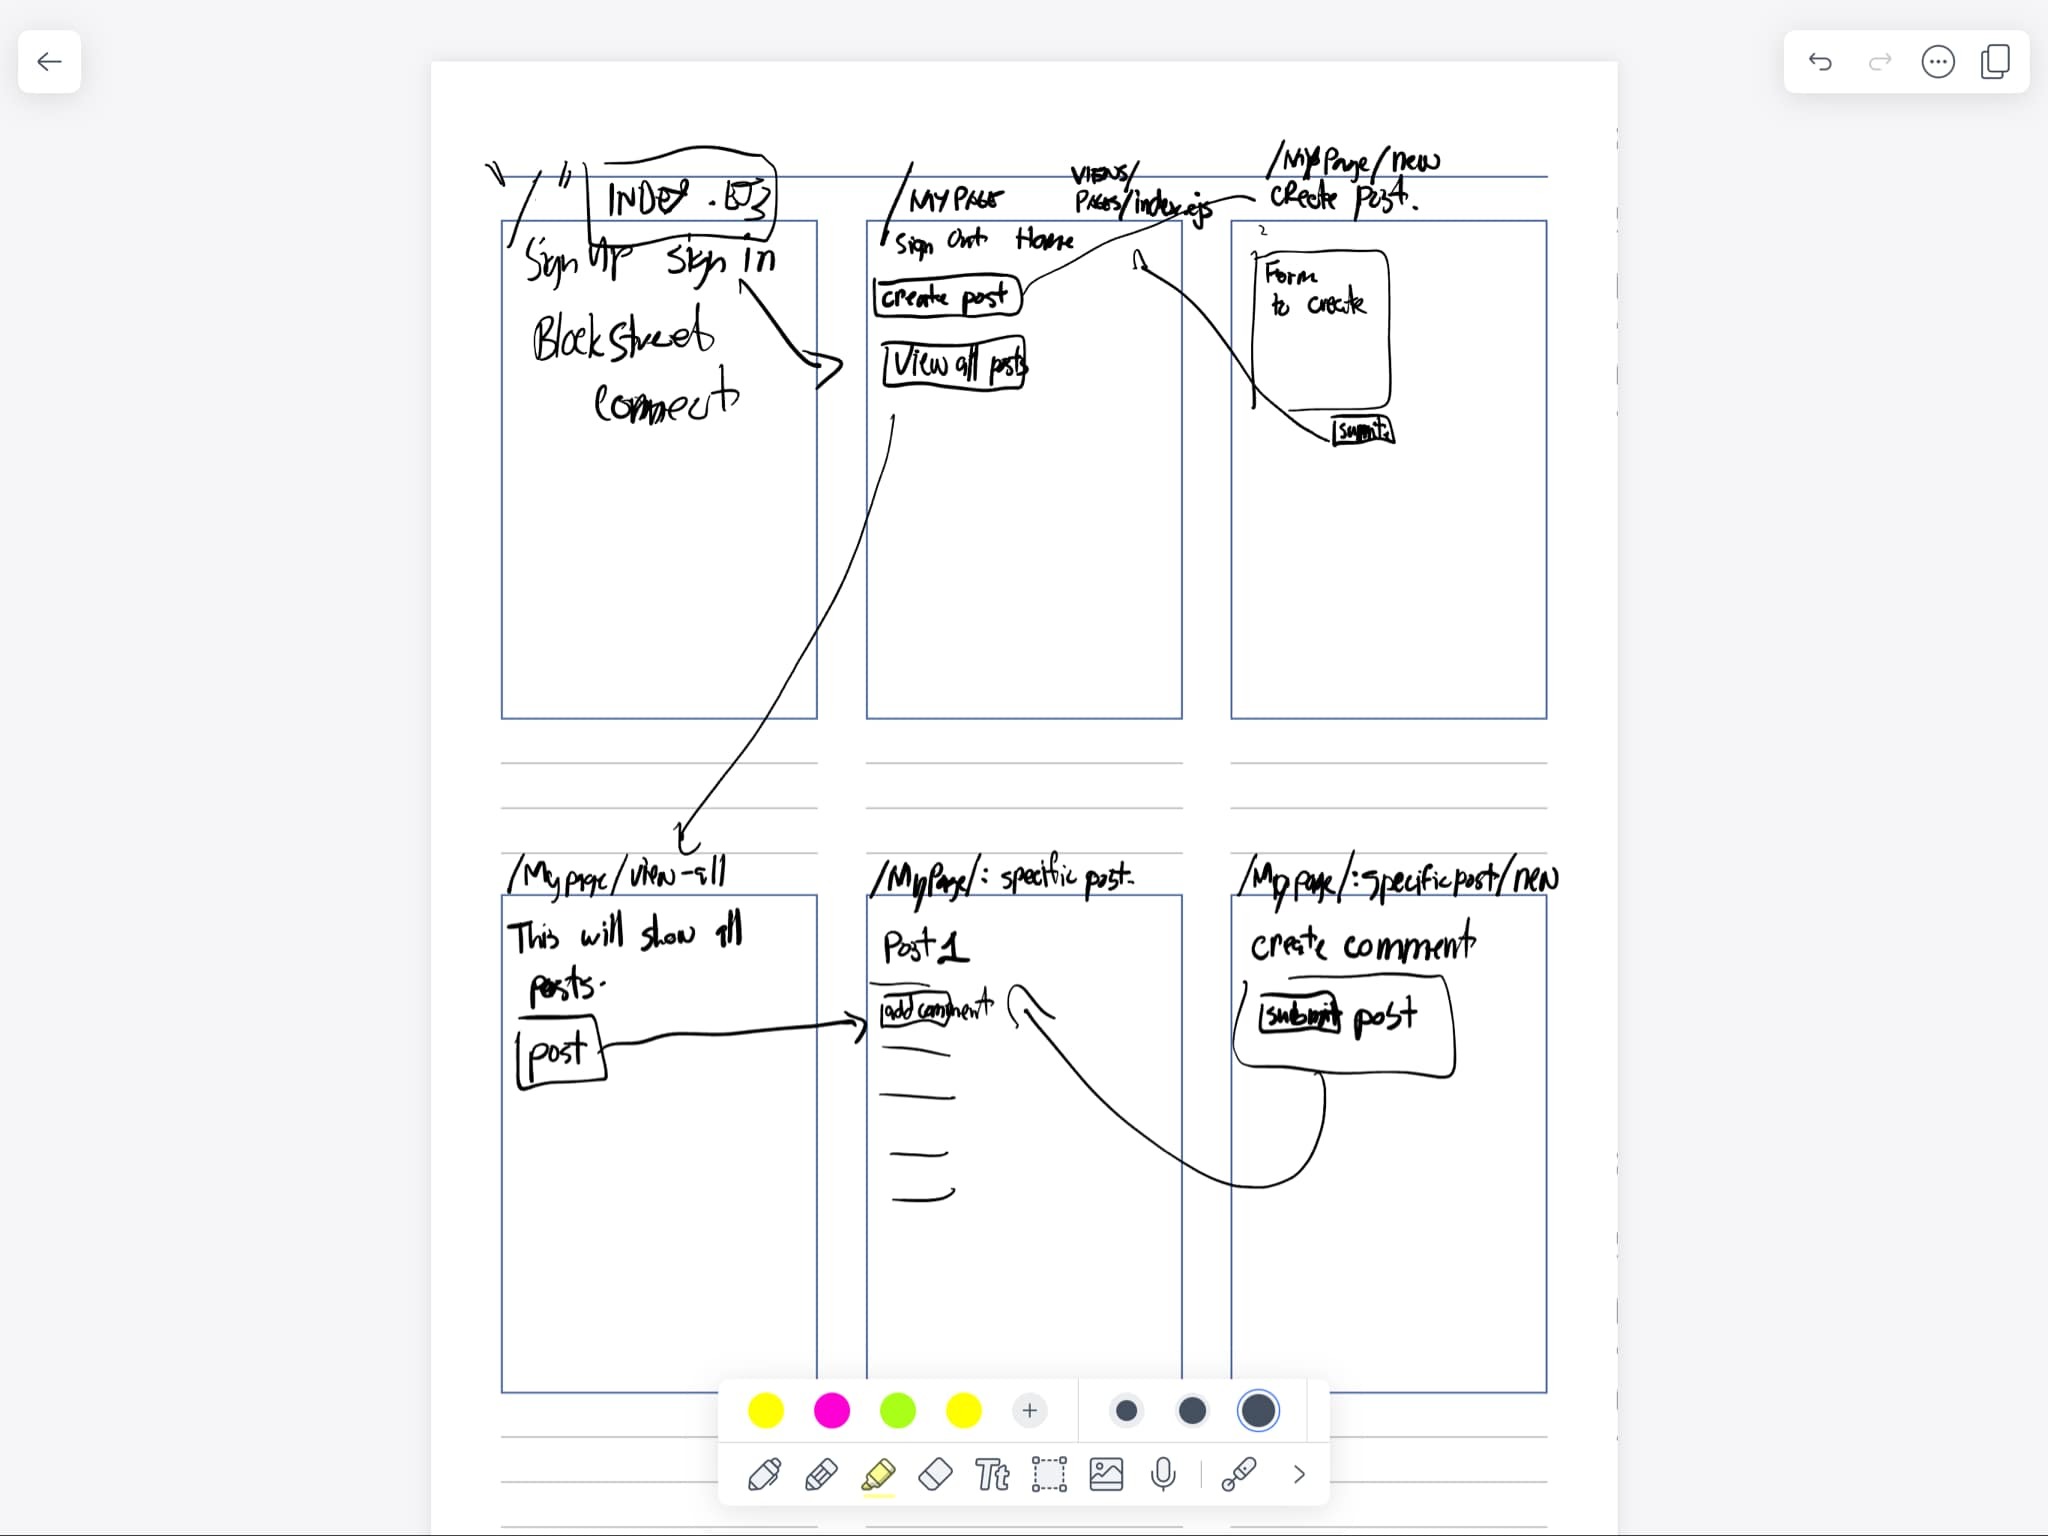 "/" INDEX.EJS
Sign Up Sign in
Block Street
Connect
/MY PAGE
VIEWS/
PAGES/index.ejs
Sign Out Home
create post
View all posts
/MyPage/new
Create post.
Form
to create
submit
/Mypage/view-all
This will show all
posts.
post
/MyPage/: specific post.
Post 1
add comment
/Mypage/:specificpost/new
create comment
submit post
Tt